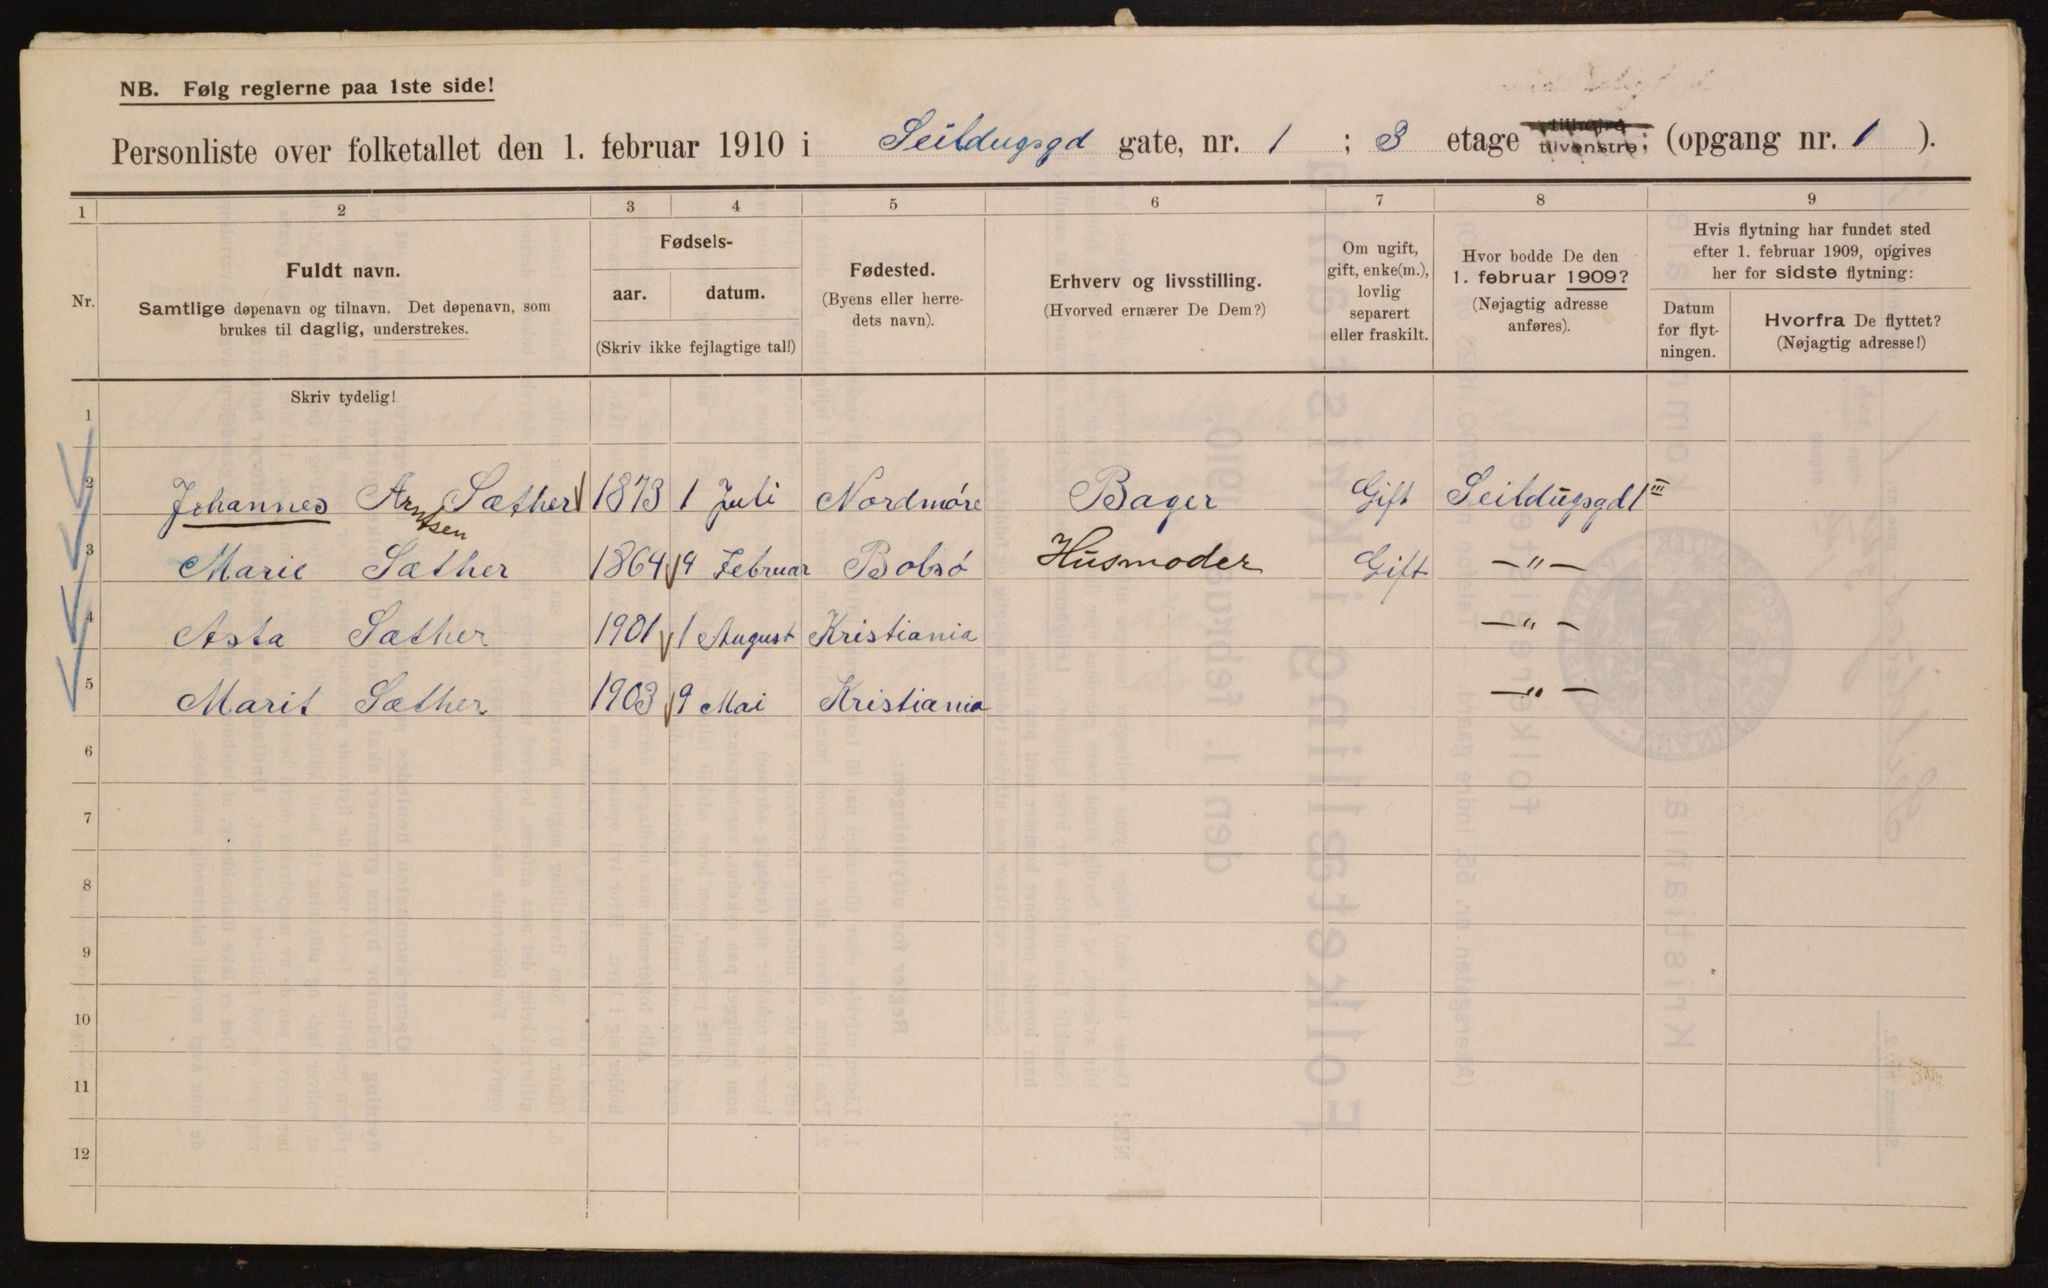 NB. Følg reglerne paa 1ste side!
Personliste over folketallet den 1. februar 1910 i Seildugsgd gate, nr. 1 ; 3 etage tilhøjre tilvenstre; (opgang nr. 1 ).
1 2 3 4 5 6 7 8 9
Nr.
Fuldt navn.
Samtlige døpenavn og tilnavn. Det døpenavn, som
brukes til daglig, understrekes.
Fødsels-
aar. datum.
(Skriv ikke fejlagtige tal!)
Fødested.
(Byens eller herre-
dets navn).
Erhverv og livsstilling.
(Hvorved ernærer De Dem?)
Om ugift,
gift, enke(m.),
lovlig
separert
eller fraskilt.
Hvor bodde De den
1. februar 1909?
(Nøjagtig adresse
anføres).
Hvis flytning har fundet sted
efter 1. februar 1909, opgives
her for sidste flytning:
Datum
for flyt-
ningen.
Hvorfra De flyttet?
(Nøjagtig adresse!)
Skriv tydelig!
1
2 Johannes Arntsen Sæther 1873 1 Juli Nordmøre Bager Gift Seildugsgd 1 III
3 Marie Sæther 1864 9 Februar Bolsø Husmoder Gift — " —
4 Asta Sæther 1901 1 August Kristiania — " —
5 Marit Sæther 1903 9 Mai Kristiania — " —
6
7
8
9
10
11
12